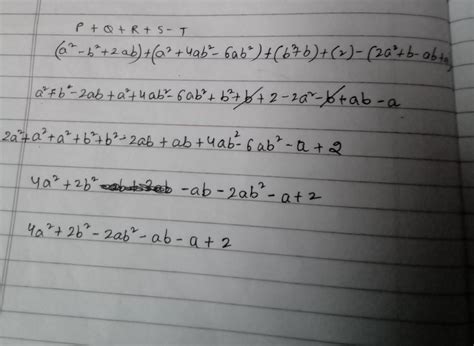 P + Q + R + S - T
(a² - b² + 2ab) + (a² + 4ab² - 6ab²) + (b² + b) + (2) - (2a² + b - ab + a)
a² + b² - 2ab + a² + 4ab² - 6ab² + b² + b + 2 - 2a² - b + ab - a
2a² + a² + a² + b² + b² - 2ab + ab + 4ab² - 6ab² - a + 2
4a² + 2b² - ab - 2ab² - a + 2
4a² + 2b² - 2ab² - ab - a + 2